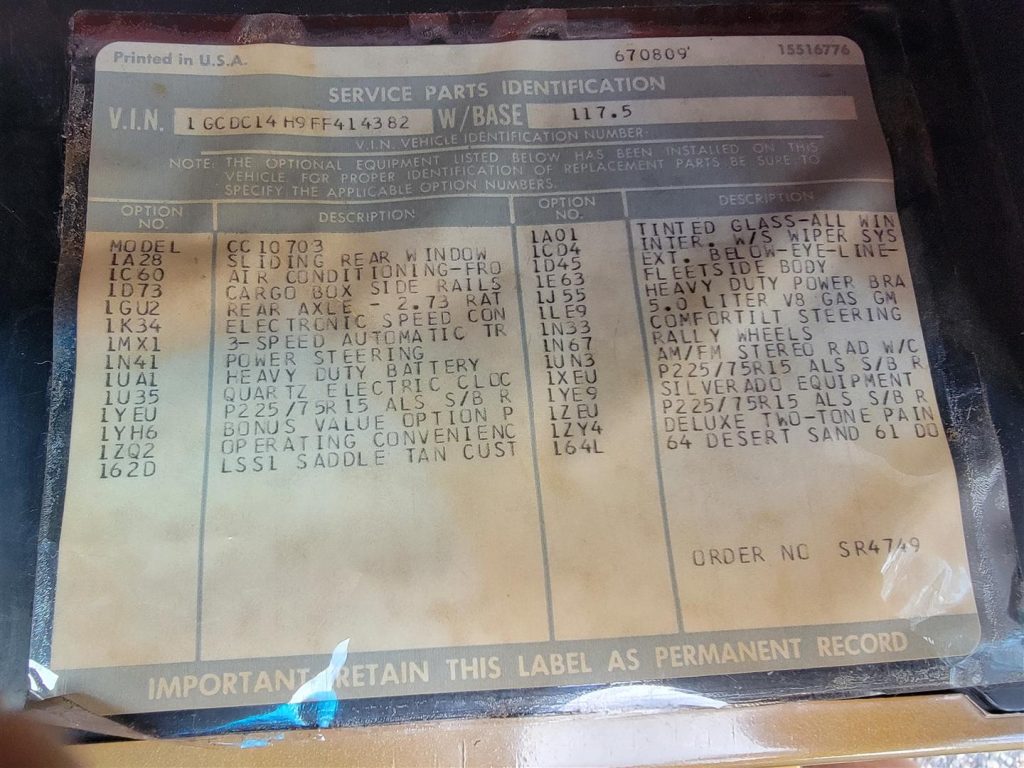 Printed in U.S.A. 670809 15516776
SERVICE PARTS IDENTIFICATION
V.I.N. 1GCDC14H9FF414382 W/BASE 117.5
V.I.N. VEHICLE IDENTIFICATION NUMBER
NOTE: THE OPTIONAL EQUIPMENT LISTED BELOW HAS BEEN INSTALLED ON THIS
VEHICLE. FOR PROPER IDENTIFICATION OF REPLACEMENT PARTS BE SURE TO
SPECIFY THE APPLICABLE OPTION NUMBERS.
OPTION NO. DESCRIPTION
MODEL CC10703
1A28 SLIDING REAR WINDOW
1C60 AIR CONDITIONING-FRO
1D73 CARGO BOX SIDE RAILS
1GU2 REAR AXLE - 2.73 RAT
1K34 ELECTRONIC SPEED CON
1MX1 3-SPEED AUTOMATIC TR
1N41 POWER STEERING
1UA1 HEAVY DUTY BATTERY
1U35 QUARTZ ELECTRIC CLOC
1YEU P225/75R15 ALS S/B R
1YH6 BONUS VALUE OPTION P
1ZQ2 OPERATING CONVENIENC
162D LSS1 SADDLE TAN CUST
OPTION NO. DESCRIPTION
1A01 TINTED GLASS-ALL WIN
1CD4 INTER. W/S WIPER SYS
1D45 EXT. BELOW-EYE-LINE-
1E63 FLEETSIDE BODY
1J55 HEAVY DUTY POWER BRA
1LE9 5.0 LITER V8 GAS GM
1N33 COMFORTILT STEERING
1N67 RALLY WHEELS
1UN3 AM/FM STEREO RAD W/C
1XEU P225/75R15 ALS S/B R
1YE9 SILVERADO EQUIPMENT
1ZEU P225/75R15 ALS S/B R
1ZY4 DELUXE TWO-TONE PAIN
164L 64 DESERT SAND 61 DO
ORDER NO SR4749
IMPORTANT RETAIN THIS LABEL AS PERMANENT RECORD